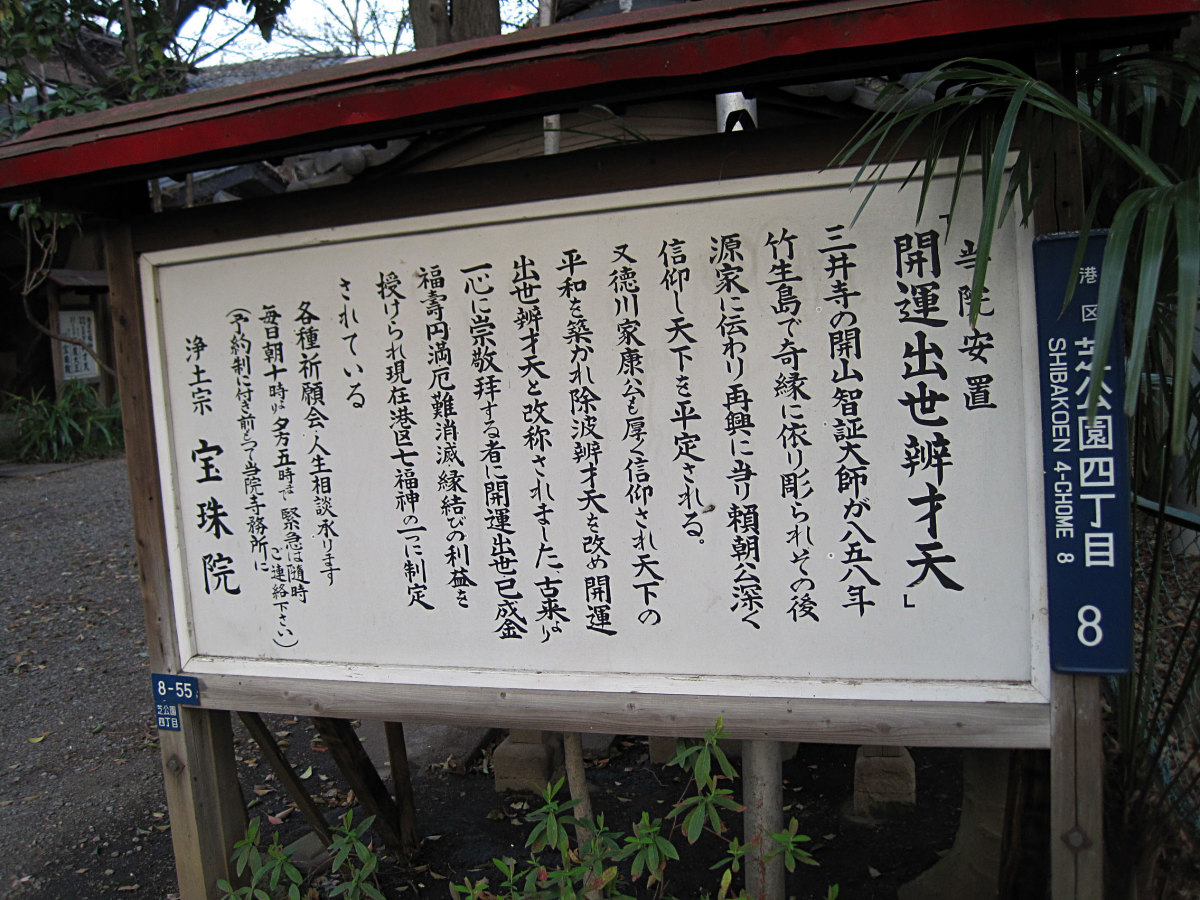 当院安置
「開運出世辨才天」
三井寺の開山智証大師が八五八年
竹生島で奇縁に依り彫られその後
源家に伝わり再興に当り頼朝公深く
信仰し天下を平定される。
又徳川家康公も厚く信仰され天下の
平和を築かれ除波辨才天を改め開運
出世辨才天と改称されました。古来より
一心に崇敬拝する者に開運出世已成金
福壽円満厄難消滅縁結びの利益を
授けられ現在港区七福神の一つに制定
されている
各種祈願会・人生相談承ります
毎日朝十時より夕方五時まで 緊急は随時
ご連絡下さい)
(予約制に付き前もって当院寺務所に
浄土宗 宝珠院
港区 芝公園四丁目 8
SHIBAKOEN 4-CHOME 8
8-55
芝公園
四丁目